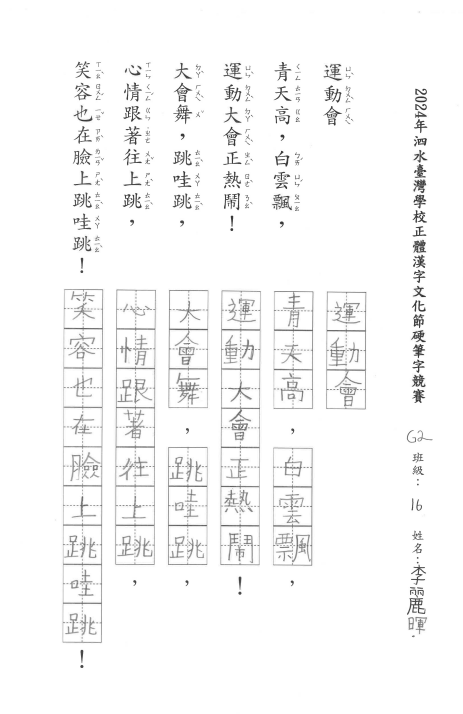 2024年泗水臺灣學校正體漢字文化節硬筆字競賽
G2 班級：16 姓名：李麗暉
運動會
青天高，白雲飄，
運動大會正熱鬧！
大會舞，跳哇跳，
心情跟著往上跳，
笑容也在臉上跳哇跳！
運動會
青天高，白雲飄，
運動大會正熱鬧！
大會舞，跳哇跳，
心情跟著往上跳，
笑容也在臉上跳哇跳！